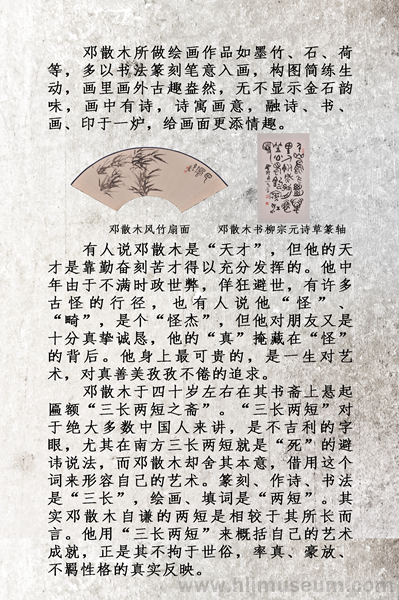 邓散木所做绘画作品如墨竹、石、荷
等，多以书法篆刻笔意入画，构图简练生
动，画里画外古趣盎然，无不显示金石韵
味，画中有诗，诗寓画意，融诗、书、
画、印于一炉，给画面更添情趣。
邓散木风竹扇面
邓散木书柳宗元诗草篆轴
有人说邓散木是“天才”，但他的天
才是靠勤奋刻苦才得以充分发挥的。他中
年由于不满时政世弊，佯狂避世，有许多
古怪的行径，也有人说他“怪”、
“畸”，是个“怪杰”，但他对朋友又是
十分真挚诚恳，他的“真”掩藏在“怪”
的背后。他身上最可贵的，是一生对艺
术，对真善美孜孜不倦的追求。
邓散木于四十岁左右在其书斋上悬起
匾额“三长两短之斋”。“三长两短”对
于绝大多数中国人来讲，是不吉利的字
眼，尤其在南方三长两短就是“死”的避
讳说法，而邓散木却舍其本意，借用这个
词来形容自己的艺术。篆刻、作诗、书法
是“三长”，绘画、填词是“两短”。其
实邓散木自谦的两短是相较于其所长而
言。他用“三长两短”来概括自己的艺术
成就，正是其不拘于世俗，率真、豪放、
不羁性格的真实反映。
www.hljmuseum.com